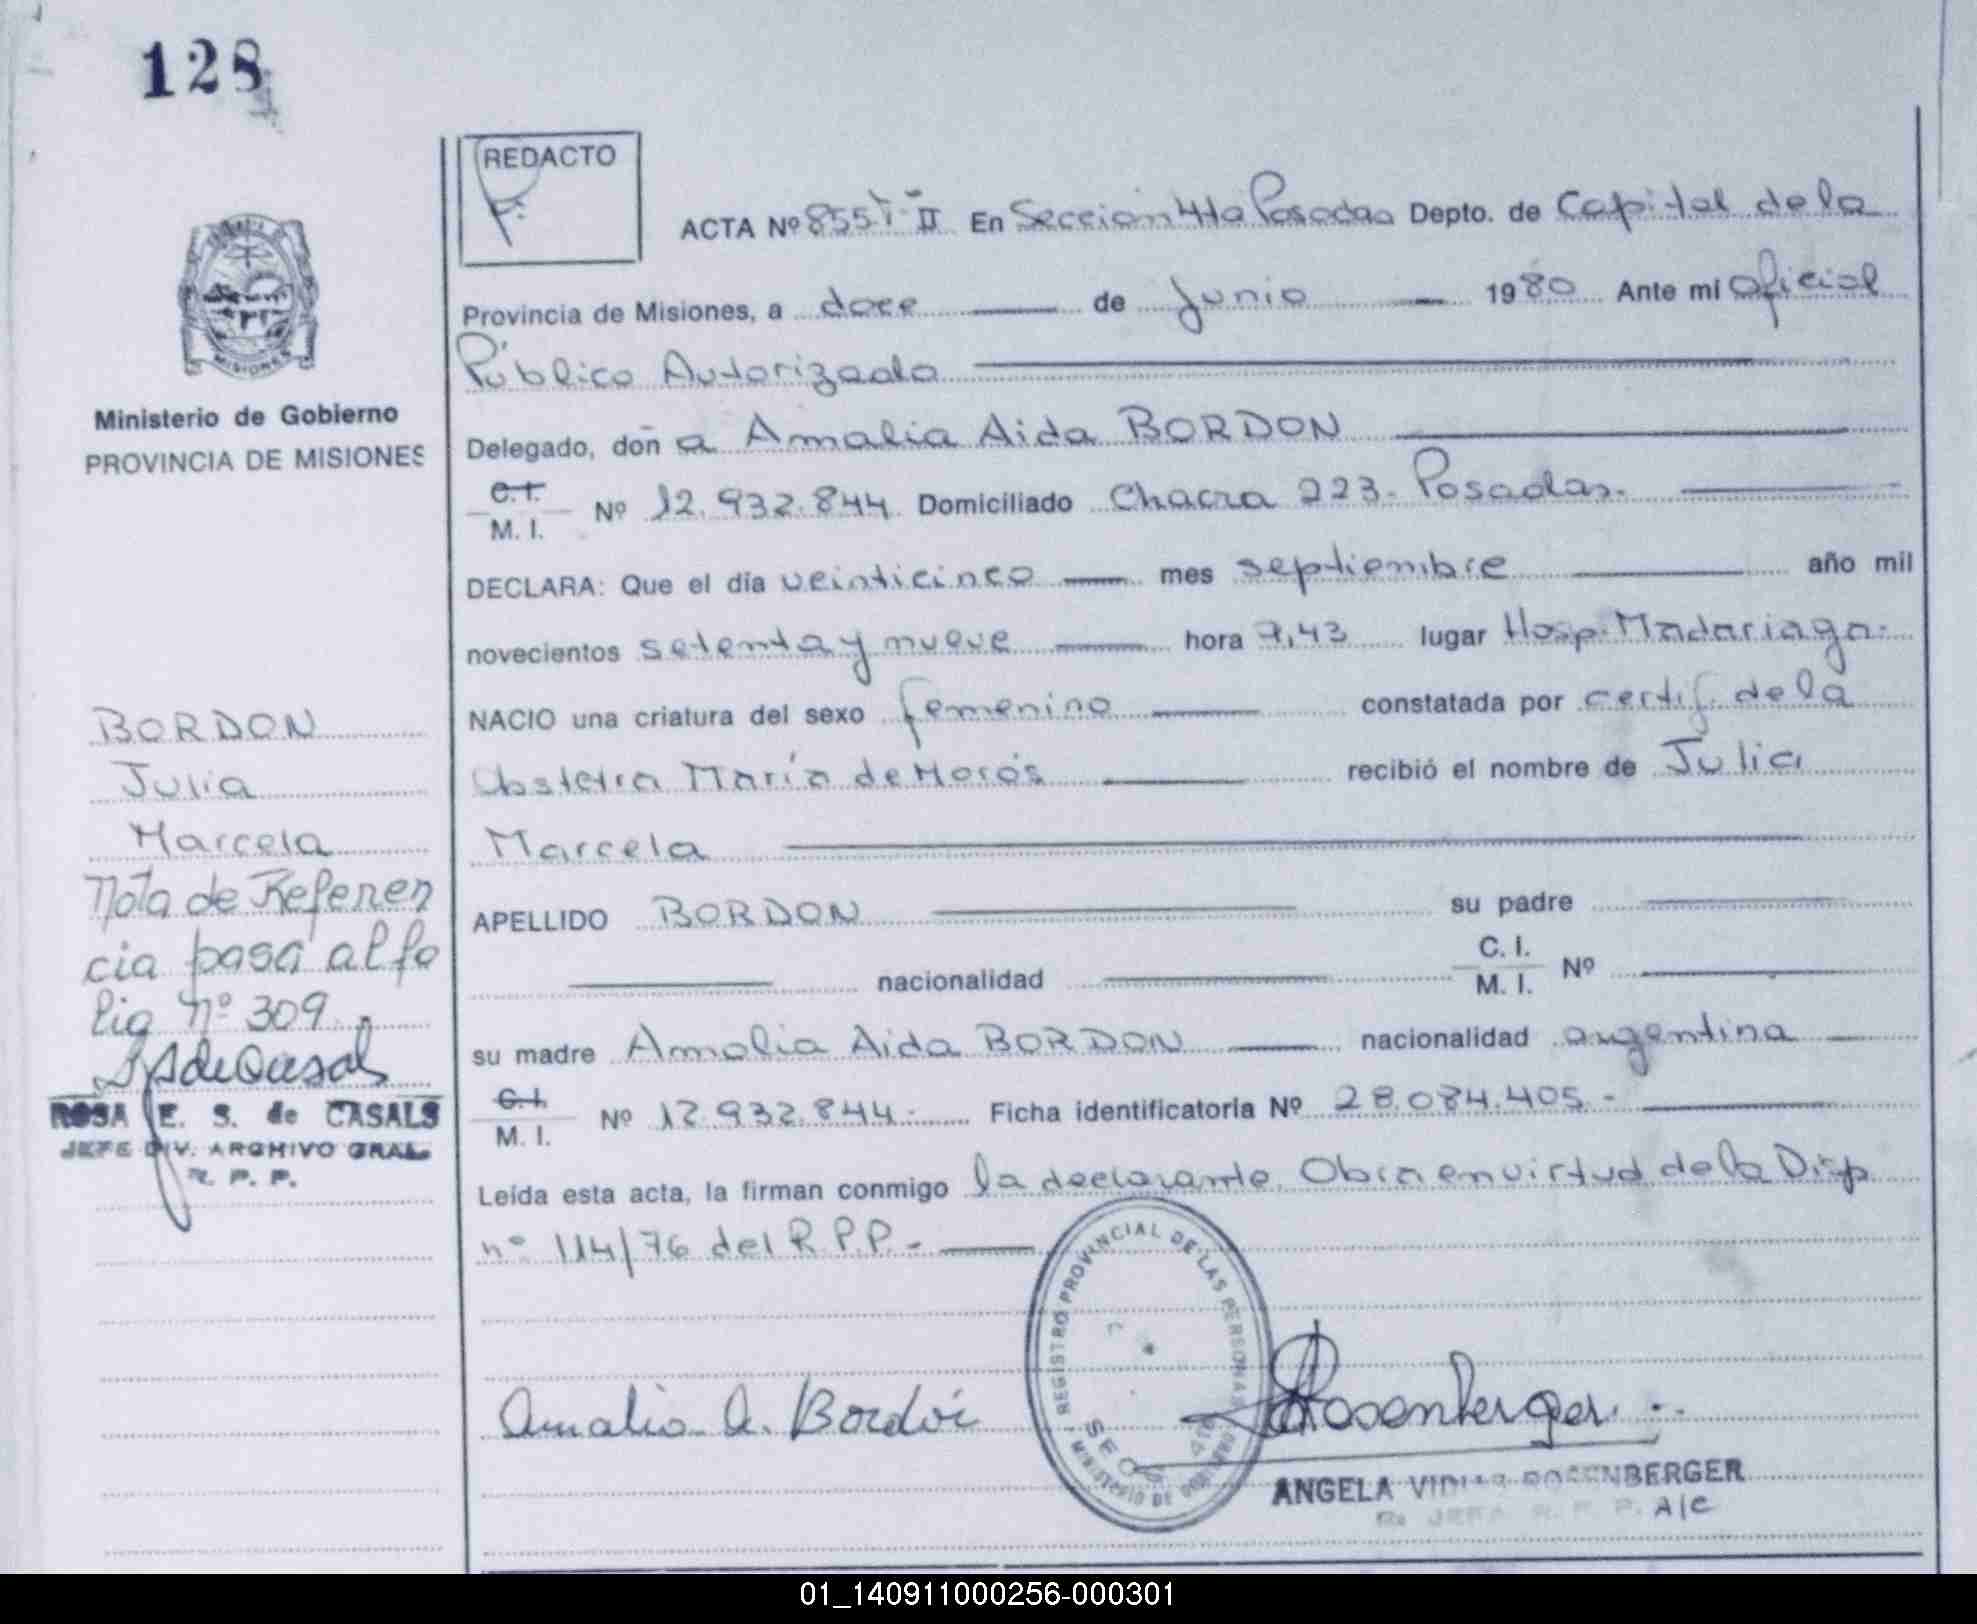 128
REDACTO
ACTA Nº 855 T II En Sección 4ta Posadas Depto. de Capital de la
Provincia de Misiones, a doce de Junio 1980 Ante mi Oficial
Público Autorizado
Ministerio de Gobierno
PROVINCIA DE MISIONES
Delegado, don a Amalia Aida BORDON
C.I.
M. I. Nº 12.932.844 Domiciliado Chacra 223. Posadas.
DECLARA: Que el día veinticinco mes septiembre año mil
novecientos setenta y nueve hora 7,43 lugar Hosp. Madariaga.
NACIO una criatura del sexo femenino constatada por certif. de la
Obstetra María de Horos recibió el nombre de Julia
Marcela
APELLIDO BORDON su padre
nacionalidad C. I. M. I. Nº
su madre Amalia Aida BORDON nacionalidad argentina
C.I.
M. I. Nº 12.932.844. Ficha identificatoria Nº 28.084.405.-
Leída esta acta, la firman conmigo la declarante. Obra en virtud de la Disp
nº 114/76 del R.P.P.-
BORDON
Julia
Marcela
Nota de Referen
cia pasa al fo
lio nº 309.
ROSA E. S. de CASALS
JEFE DIV. ARCHIVO GRAL.
R. P. P.
REGISTRO PROVINCIAL DE LAS PERSONAS
MINISTERIO DE GOBIERNO
SECC. 4ta
Amalia A. Bordón
Rosenberger
ANGELA ROSENBERGER
JEFA R. P. P. A/C
01_140911000256-000301